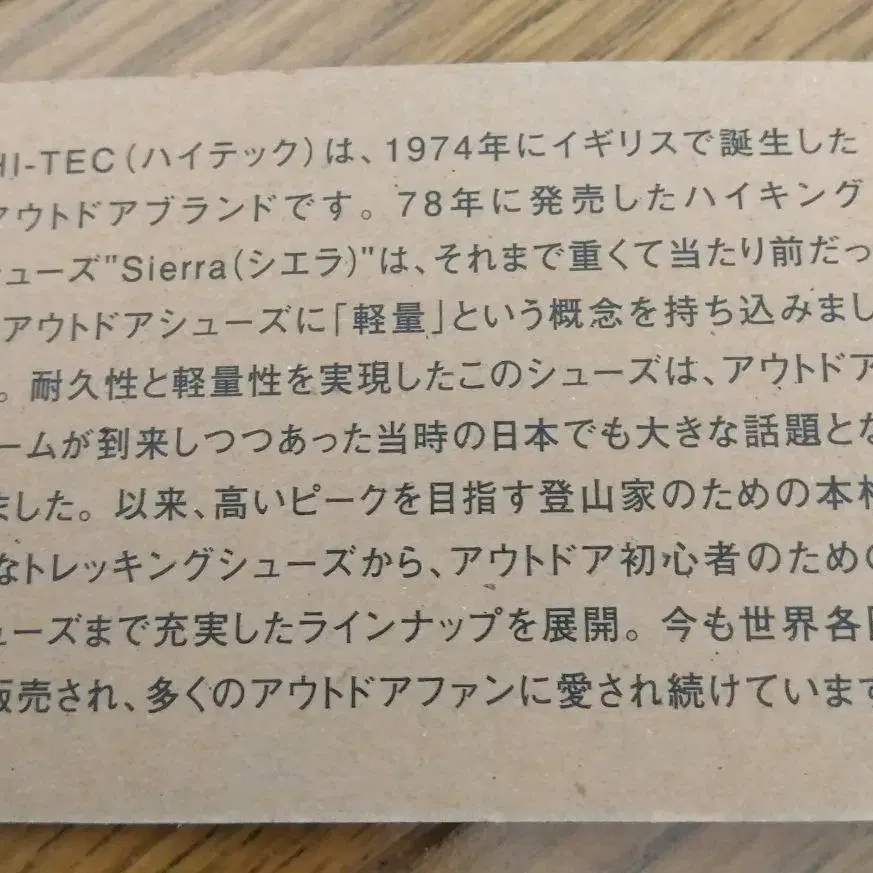 HI-TEC（ハイテック）は、1974年にイギリスで誕生した
アウトドアブランドです。78年に発売したハイキング
シューズ"Sierra（シエラ）"は、それまで重くて当たり前だっ
アウトドアシューズに「軽量」という概念を持ち込みまし
。耐久性と軽量性を実現したこのシューズは、アウトドア
ームが到来しつつあった当時の日本でも大きな話題とな
ました。以来、高いピークを目指す登山家のための本格
なトレッキングシューズから、アウトドア初心者のための
ューズまで充実したラインナップを展開。今も世界各国
販売され、多くのアウトドアファンに愛され続けています